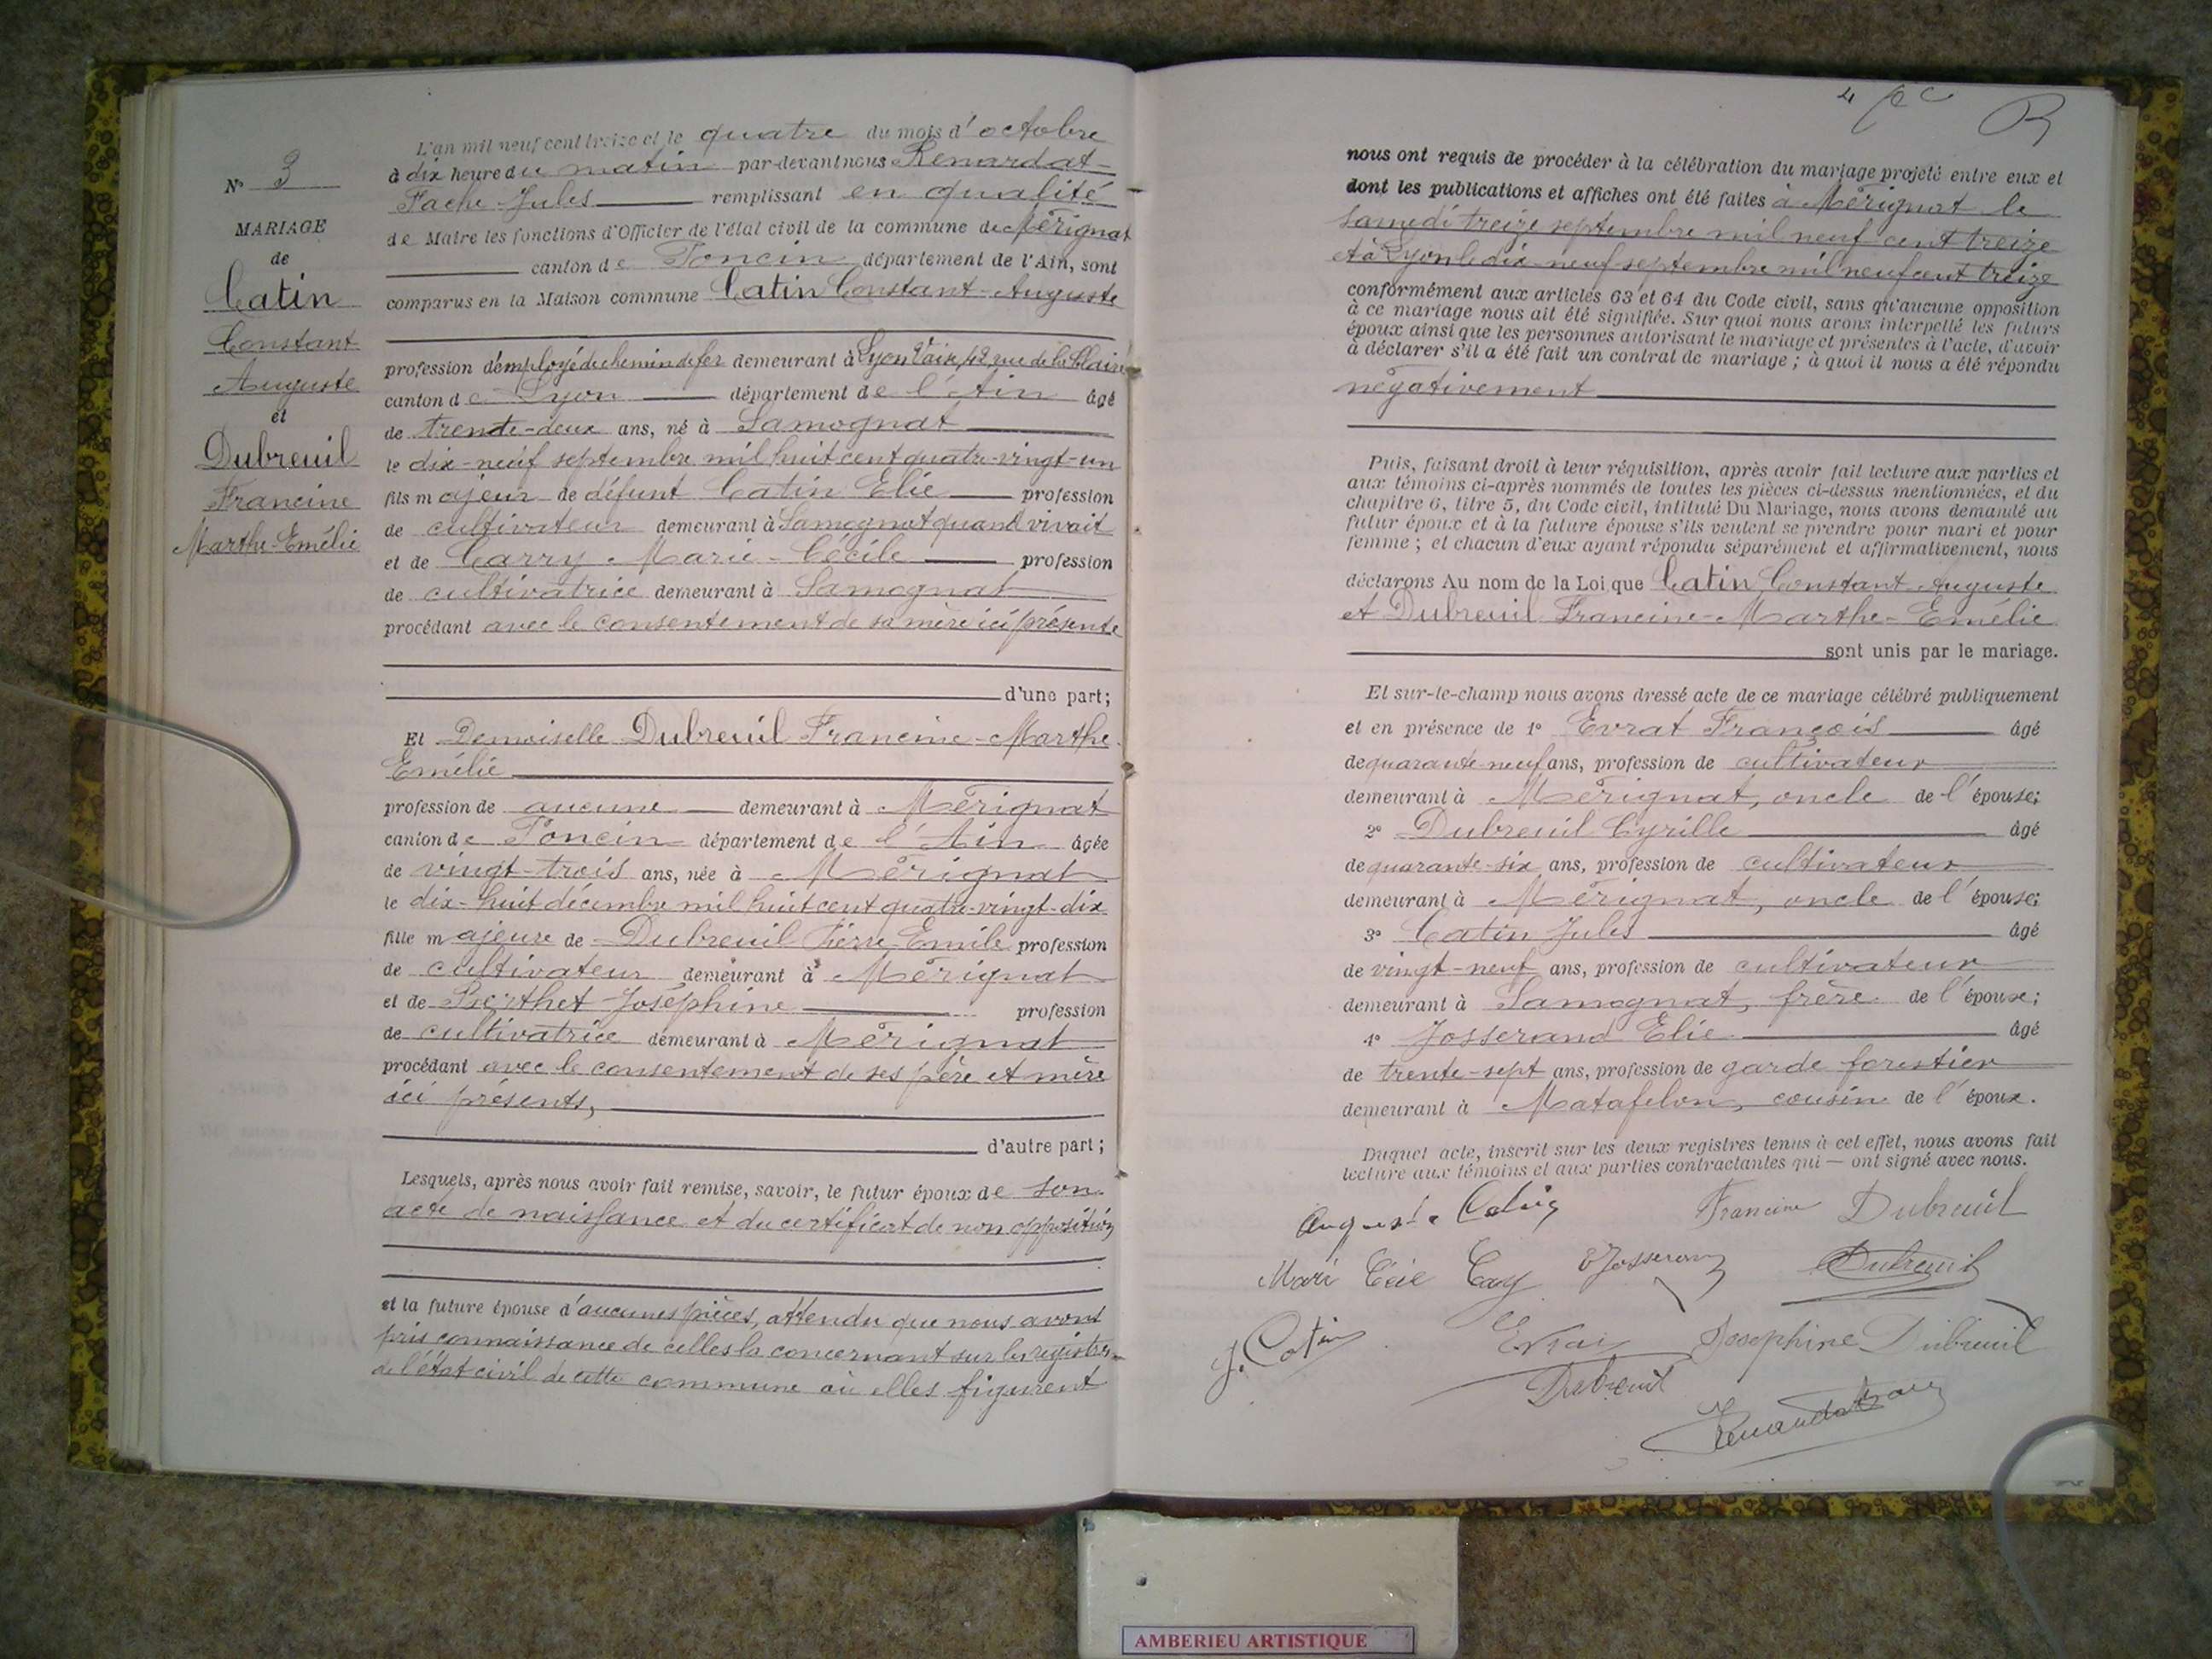 N° 3
MARIAGE
de
Catin
Constant
Auguste
et
Dubreuil
Francine
Marthe-Emélie
L'an mil neuf cent treize et le quatre du mois d'octobre
à dix heure du matin par-devant nous Renardat-
Fache Jules remplissant en qualité
de Maire les fonctions d'Officier de l'état civil de la commune de Mérignat
canton de Poncin département de l'Ain, sont
comparus en la Maison commune Catin Constant-Auguste
profession d'employé du chemin de fer demeurant à Lyon Vaise, 42, rue de la Claire
canton de Lyon département de l'Ain âgé
de trente-deux ans, né à Samognat
le dix-neuf septembre mil huit cent quatre-vingt-un
fils majeur de défunt Catin Elie profession
de cultivateur demeurant à Samognat quand vivait
et de Carry Marie-Cécile profession
de cultivatrice demeurant à Samognat
procédant avec le consentement de sa mère ici présente
d'une part;
Et Demoiselle Dubreuil Francine-Marthe
Emélie
profession de aucune demeurant à Mérignat
canton de Poncin département de l'Ain âgée
de vingt-trois ans, née à Mérignat
le dix-huit décembre mil huit cent quatre-vingt-dix
fille majeure de Dubreuil Pierre-Emile profession
de cultivateur demeurant à Mérignat
et de Berthet Joséphine profession
de cultivatrice demeurant à Mérignat
procédant avec le consentement de ses père et mère
ici présents,
d'autre part;
Lesquels, après nous avoir fait remise, savoir, le futur époux de son
acte de naissance et du certificat de non opposition
et la future épouse d'aucunes pièces, attendu que nous avons
pris connaissance de celles la concernant sur les registres
de l'état civil de cette commune où elles figurent
4 R
nous ont requis de procéder à la célébration du mariage projeté entre eux et
dont les publications et affiches ont été faites à Mérignat le
samedi treize septembre mil neuf cent treize
et à Lyon le dix-neuf septembre mil neuf cent treize
conformément aux articles 63 et 64 du Code civil, sans qu'aucune opposition
à ce mariage nous ait été signifiée. Sur quoi nous avons interpellé les futurs
époux ainsi que les personnes autorisant le mariage et présentes à l'acte, d'avoir
à déclarer s'il a été fait un contrat de mariage ; à quoi il nous a été répondu
négativement
Puis, faisant droit à leur réquisition, après avoir fait lecture aux parties et
aux témoins ci-après nommés de toutes les pièces ci-dessus mentionnées, et du
chapitre 6, titre 5, du Code civil, intitulé Du Mariage, nous avons demandé au
futur époux et à la future épouse s'ils veulent se prendre pour mari et pour
femme ; et chacun d'eux ayant répondu séparément et affirmativement, nous
déclarons Au nom de la Loi que Catin Constant-Auguste
et Dubreuil Francine-Marthe-Emélie
sont unis par le mariage.
Et sur-le-champ nous avons dressé acte de ce mariage célébré publiquement
et en présence de 1° Evrat François âgé
de quarante-neuf ans, profession de cultivateur
demeurant à Mérignat, oncle de l'épouse;
2° Dubreuil Cyrille âgé
de quarante-six ans, profession de cultivateur
demeurant à Mérignat, oncle de l'épouse;
3° Catin Jules âgé
de vingt-neuf ans, profession de cultivateur
demeurant à Samognat, frère de l'époux;
4° Josserand Elie âgé
de trente-sept ans, profession de garde forestier
demeurant à Matafelon, cousin de l'époux.
Duquel acte, inscrit sur les deux registres tenus à cet effet, nous avons fait
lecture aux témoins et aux parties contractantes qui — ont signé avec nous.
Auguste Catin Francine Dubreuil
E Josserand Dubreuil
J. Catin Josephine Dubreuil
Dubreuil
AMBERIEU ARTISTIQUE